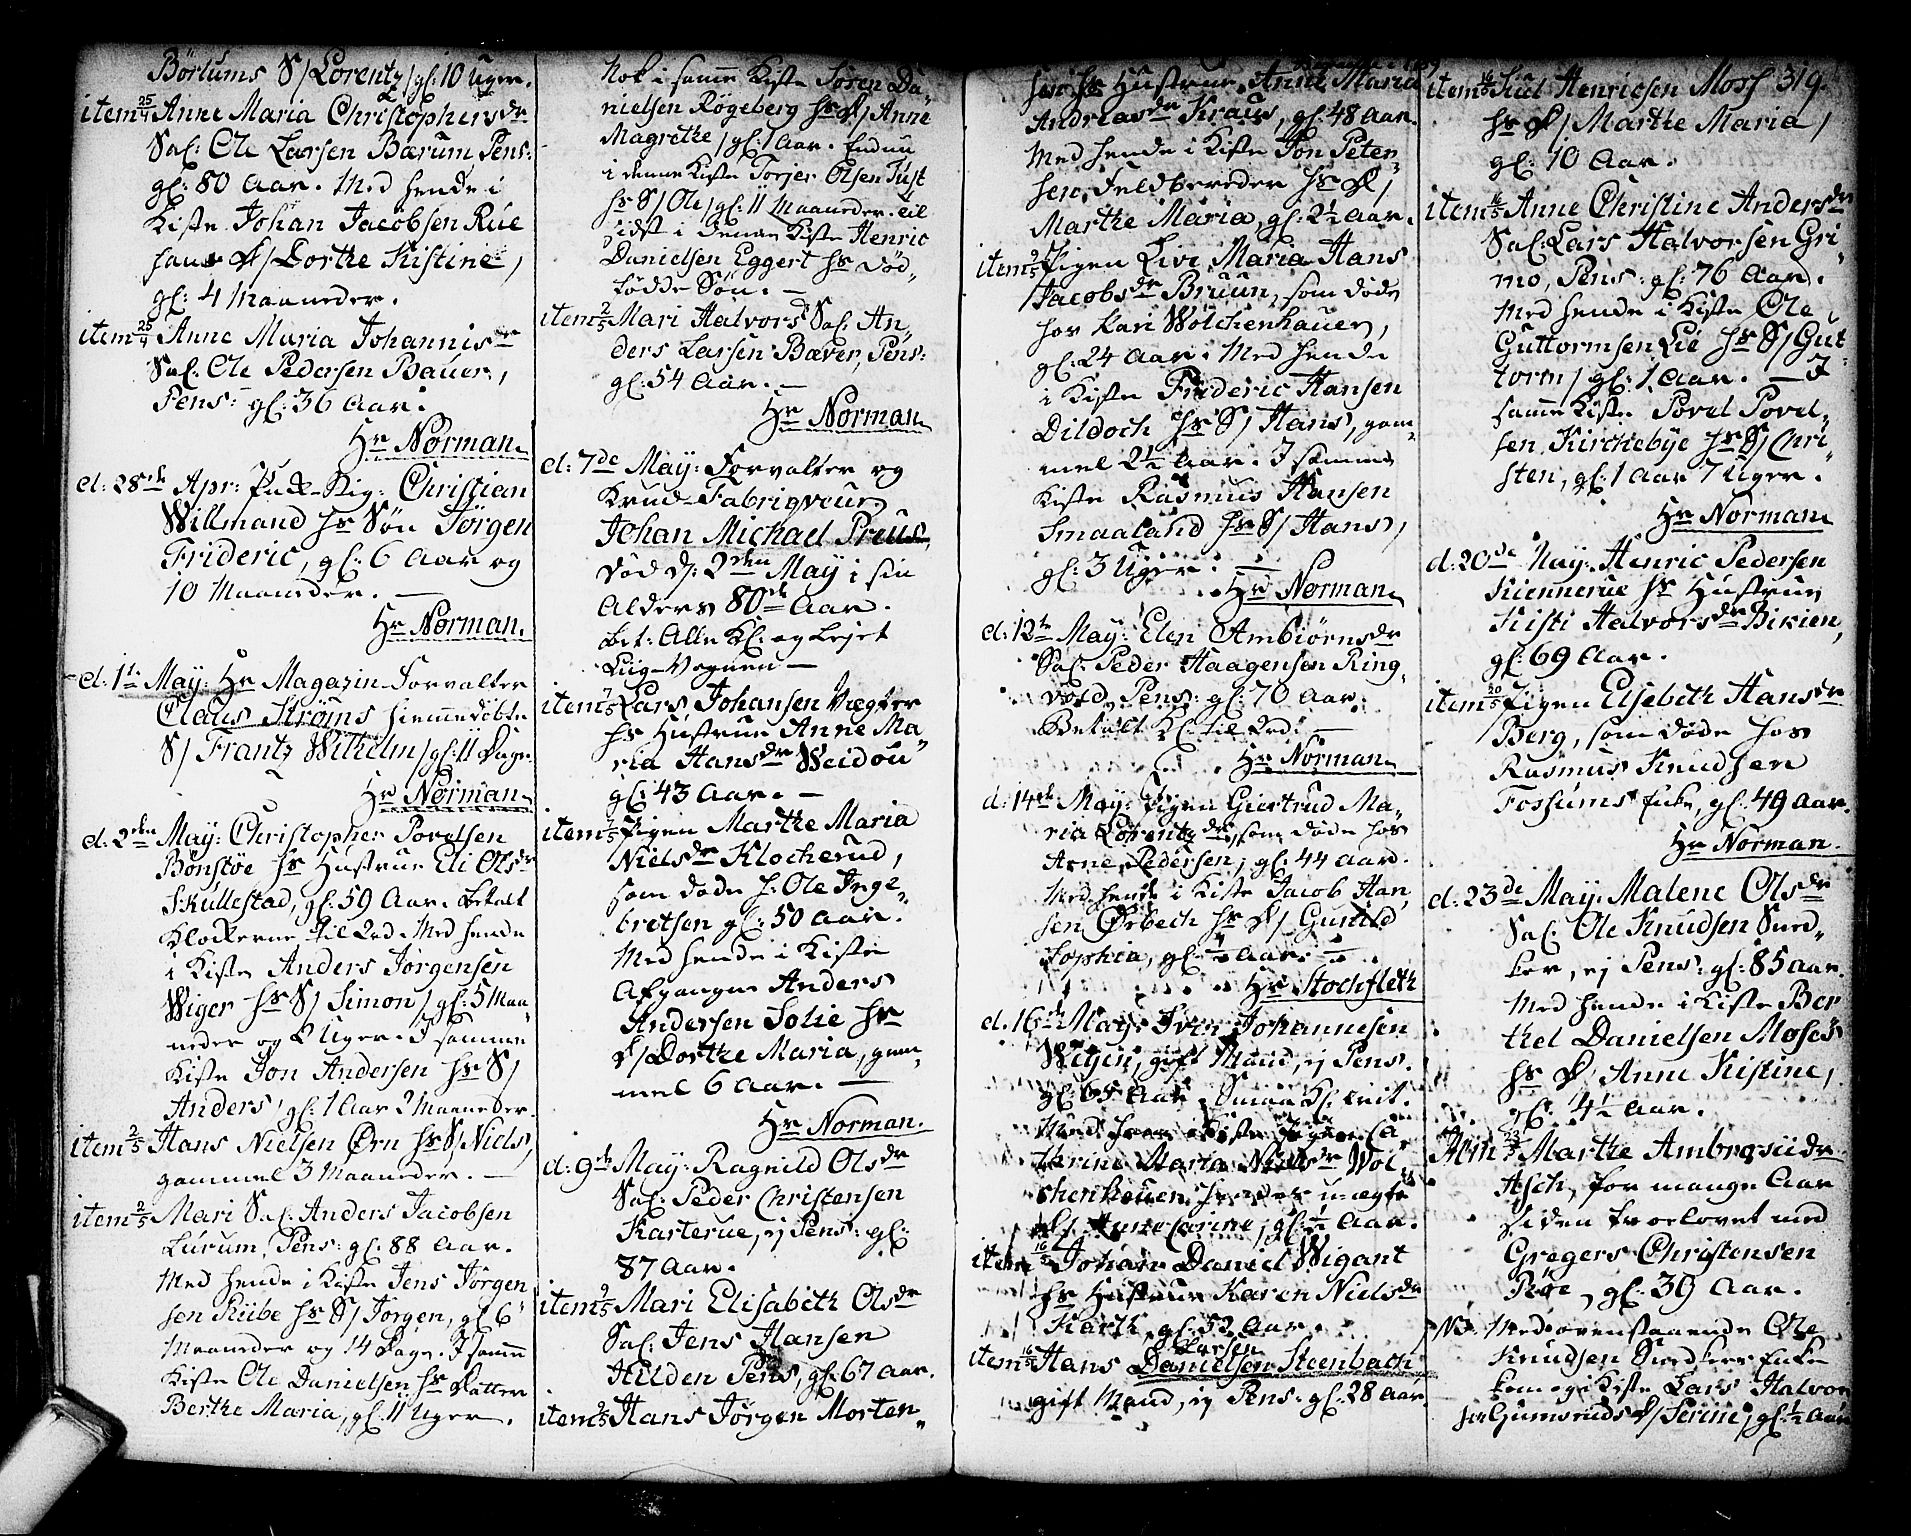 Børlums S/ Lorentz/ gl: 10 Uger.
item 25/4 Anne Maria Christophersdr
Sal: Ole Larsen Bærum Pens:
gl: 80 Aar. Med hende i
Kiste Johan Jacobsen Rue
hans D/ Dorthe Kistine,
gl: 4 Maaneder.
item 25/4 Anne Maria Johannisdr
Sal: Ole Pedersen Bauer,
Pens: gl: 36 Aar.
Hr Norman.
d: 28de Apr: Christian
Willmand hs Søn Jørgen
Frideric, gl: 6 Aar og
10 Maaneder. —
Hr Norman.
d: 1te May: Hr Magazin-Forvalter
Claus Strøms hiemmedøbte
S/ Frantz Wilhelm/ gl: 11 Dage.
Hr Norman.
d: 2den May: Christopher Povelsen
Bønstøe hs Hustrue Eli Olsdr
Skullestad, gl: 59 Aar. Betalt
Klockerne til 2rd Med hende
i Kiste Anders Jørgensen
Wiger hs S/ Simon/ gl: 5 Maa-
neder og 2 Uger. I samme
Kiste Jon Andersen hs S/
Anders/ gl: 1 Aar 2 Maaneder.
item 2/5 Hans Nielsen Ørn hs S. Niels,
gammel 3 Maaneder. —
item 2/5 Mari Sal. Anders Jacobsen
Lurum, Pens: gl: 88 Aar.
Med hende i Kiste Jens Jørgen
sen Riibe hs S/ Jørgen, gl 6
Maaneder og 14 Dage. I samme
Kiste Ole Danielsen hs Datter
Berthe Maria, gl: 11 Uger.
Nok i samme Kiste Søren Da-
nielsen Røgeberg hs D/ Anne
Magrethe/ gl: 1 Aar. Endnu
i denne Kiste Torjer Olsen Tust
hs S/ Ole/ gl: 11 Maaneder. Til
sidst i denne Kiste Henric
Danielsen Eggert hs død-
fødde Søn. —
item 2/5 Mari Halvorsd Sal. An-
ders Larsen Bæver, Pens:
gl: 54 Aar. —
Hr Norman
d: 7de May: Forvalter og
Krud-Fabriqveur
Johan Michael Preus,
død d: 2den May i sin
Alders 80de Aar.
bet: Alle Kl: og Lejet
Liig-Vognen —
item 7/5 Lars Johansen Vægter
hs Hustrue Anne Ma-
ria Hansdr Weidou
gl: 43 Aar. —
item 7/5 Pigen Marthe Maria
Nielsdr Klocherud,
som døde h. Ole Inge-
bretsen gl: 50 Aar.
Med hende i Kiste
Afgangne Anders
Andersen Solie hs
D/ Dorthe Maria, gam-
mel 6 Aar. —
Hr Norman.
d: 9de May: Ragnild Olsdr
Sal: Peder Christensen
Karterue, ej Pens: gl:
87 Aar.
item 9/5 Mari Elisabeth Olsdr
Sal: Jens Hansen
Hilden Pens, gl: 67 Aar.
item 9/5 Hans Jørgen Morten-
sen hs Hustrue Anne Maria
Andreasdr Kraus, gl: 48 Aar.
Med hende i Kiste Jon Peter-
sen, Feldbereder hs D/
Marthe Maria, gl: 2½ Aar.
item 9/5 Pigen Live Maria Hans
Jacobsdr Bruun, som døde
hos Kari Wolchenhauer,
gl: 24 Aar. Med hende
i Kiste Frideric Hansen
Dildoch hs S/ Hans, gam-
mel 2½ Aar. I samme
Kiste Rasmus Hansen
Smaaland hs S/ Hans,
gl: 3 Uger. —
Hr Norman.
d: 12te May: Eleni Ambiørnsdr
Sal: Peder Haagensen Ring-
vold, Pens: gl: 70 Aar.
Betalt Kl: til 2rd: —
Hr Norman
d: 14de May: Pigen Giertrud Ma-
ria Lorentzdr, som døde hos
Arne Pedersen, gl: 44 Aar.
Med hende i Kiste Jacob Han-
sen Ørbech hs D/ Gunild
Sophia, gl: Aar. —
Hr Stochfleth
d: 16de May: Iver Johannesen
gift Mand, ej Pens.
gl: 65 Aar. Smaa Kl: frit.
Med ham i Kiste Pigen Ca-
thrine Maria Nielsdr Wol-
chenheuer hendes uægte
D/ Anne Carine, gl: ½ Aar.
item 16/5 Johan Daniel Wigant
hs Hustrue Karen Nielsdr
Karth, gl: 52 Aar.
Larsen
item 16/5 Hans Danielsen Steenbach
gift Mand, ej Pens: gl: 28 Aar
319.
item 16/5 Henricsen Moss
hs D/ Marthe Maria,
gl: 10 Aar.
item 16/5 Anne Christine Andersdr
Sal: Lars Halvorsen Gri-
mo, Pens: gl: 76 Aar.
Med hende i Kiste Ole
Guttormsen Lie hs S/ Gut-
torm/ gl: 1 Aar. — I
samme Kiste Povel Povel-
sen Kirchebye hs S/ Chri-
sten, gl: 1 Aar 7 Uger.
Hr Norman
d: 20de May: Henric Pedersen
Kiennerue hs Hustrue
Kisti Halvorsdr Bikien,
gl: 69 Aar.
item 20/5 Pigen Elsebeth Hansdr
Berg, som døde hos
Rasmus Knudsen
Fossums Enke, gl: 49 Aar.
Hr Norman.
d: 23de May: Malene Olsdr
Sal: Ole Knudsen Sned-
ker, ej Pens: gl: 85 Aar.
Med hende i Kiste Ber
thel Danielsen Moses
hs D/ Anne Kistine,
gl: 4½ Aar.
Item 23/5 Marthe Ambrosiidr
Asch, for mange Aar
siden troelovet med
Gregers Christensen
Røe, gl: 39 Aar.
NB. Med ovenstaaende Ole
Knudsen Snedkers Enke
kom og i Kiste Lars Halvor
sen Gumseruds D/ Serine, gl: ½ Aar